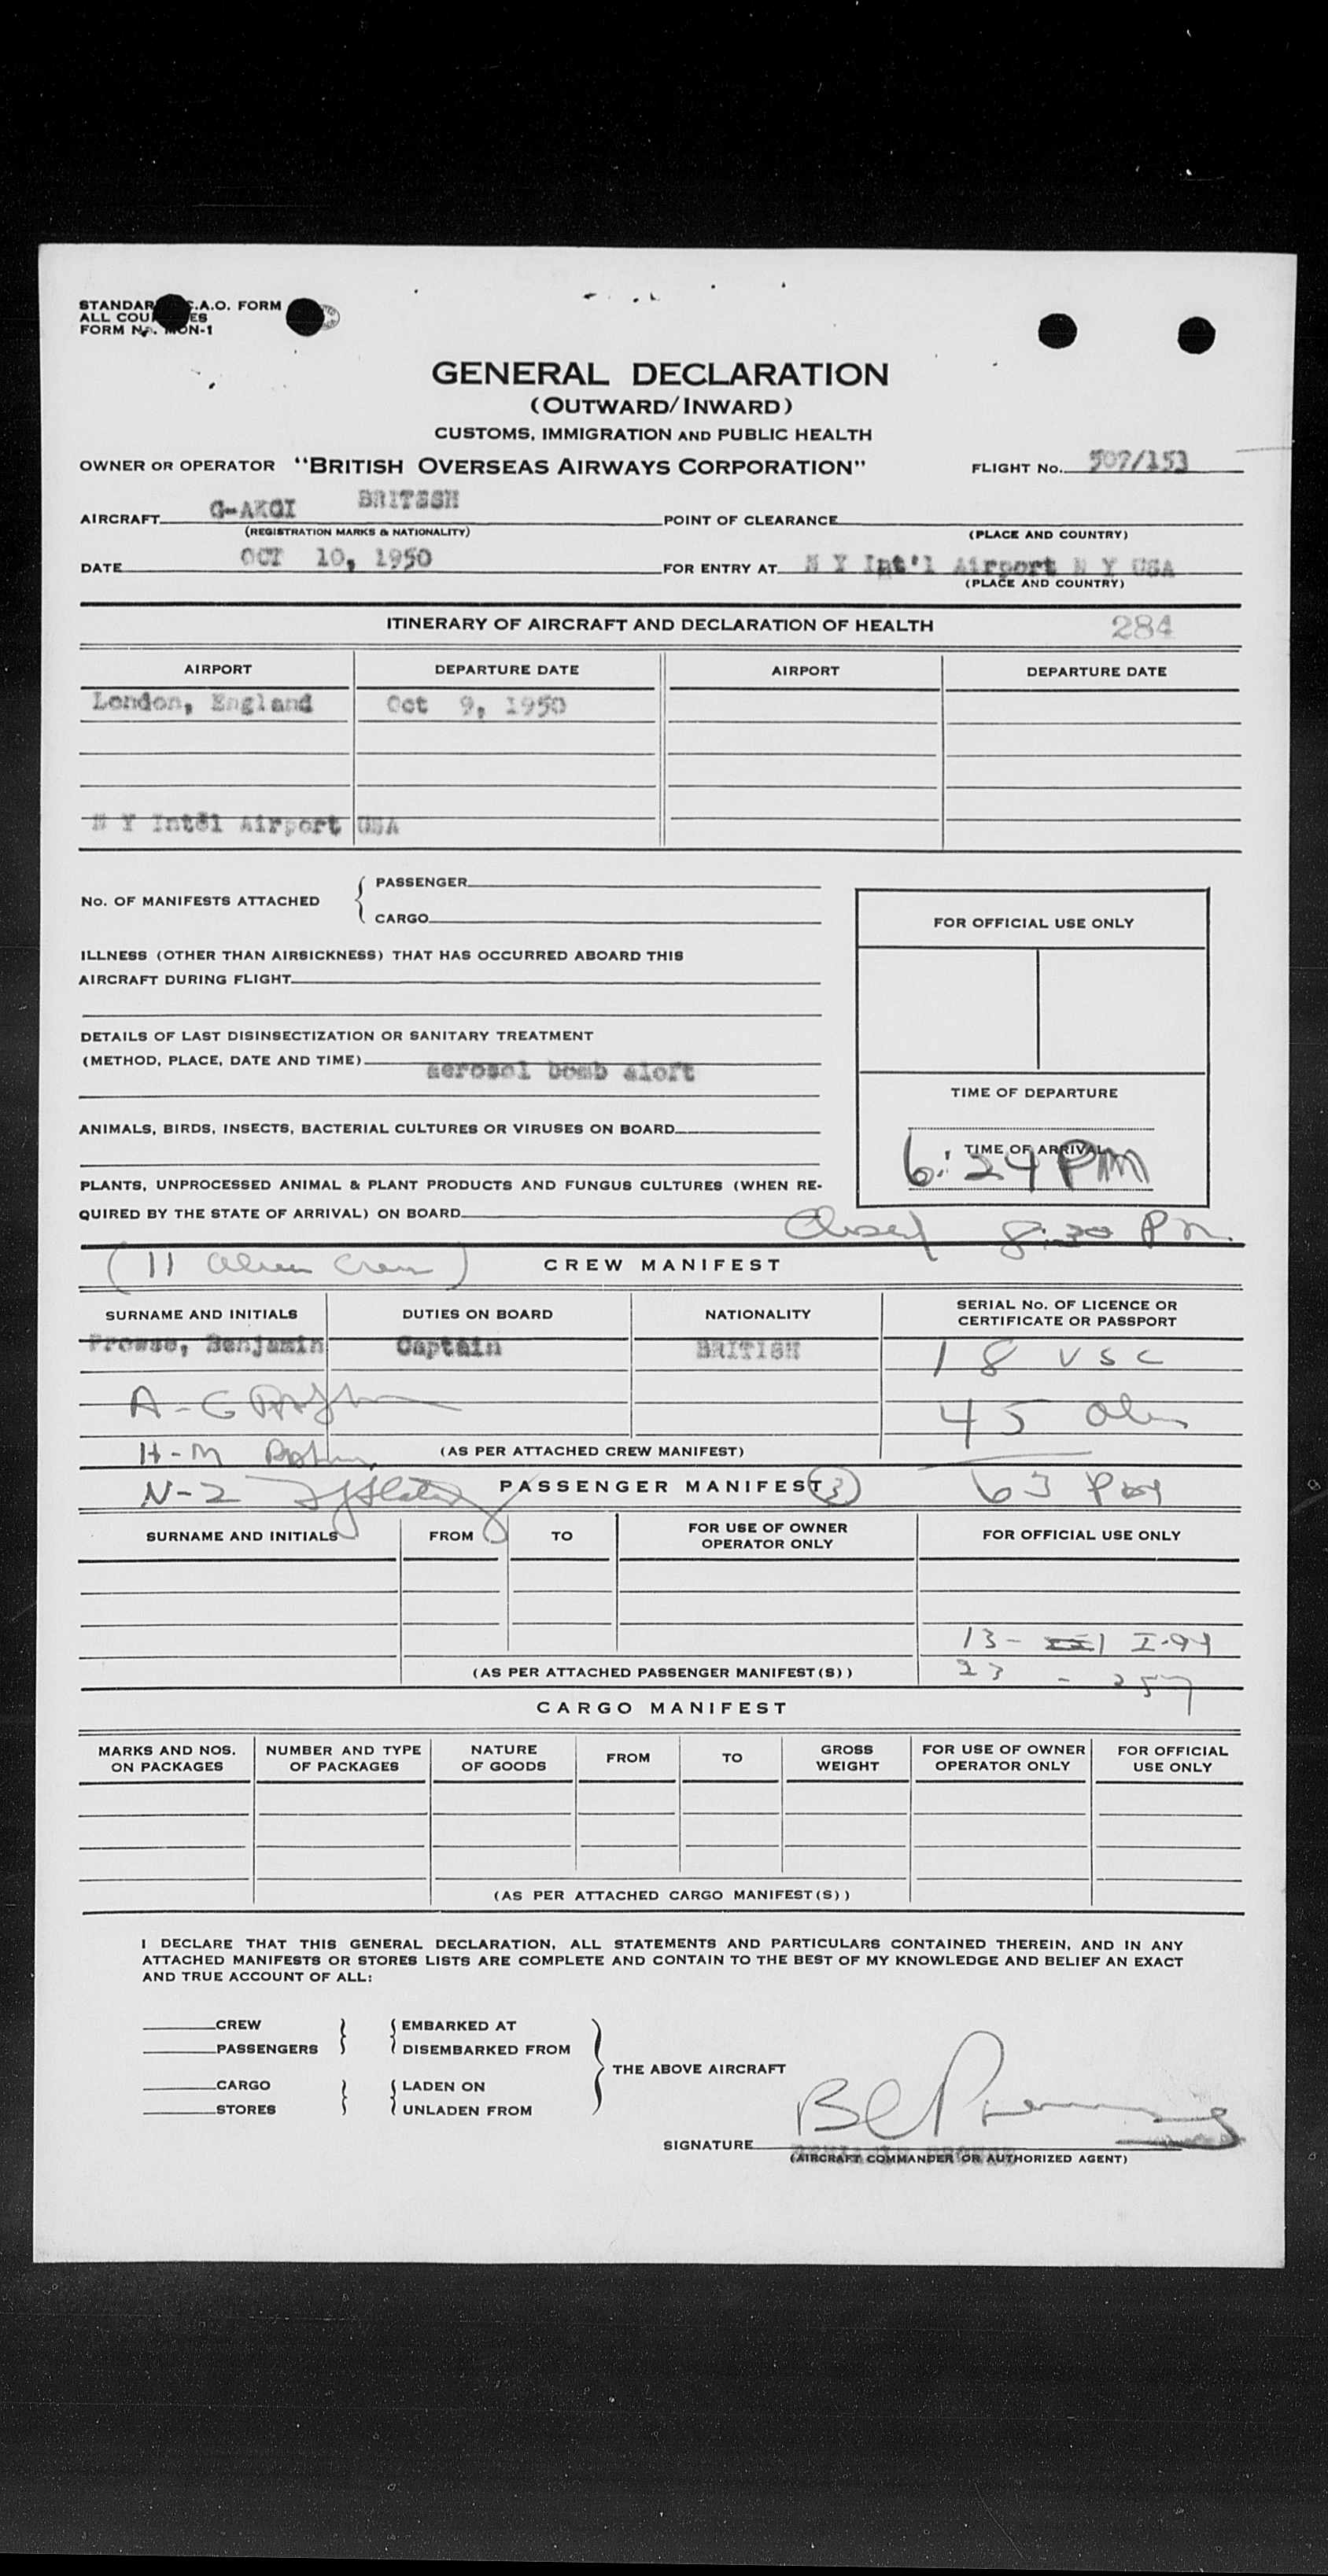 STANDARD C.A.O. FORM
ALL COUNTRIES
FORM No. MON-1
GENERAL DECLARATION
(OUTWARD/INWARD)
CUSTOMS, IMMIGRATION AND PUBLIC HEALTH
OWNER OR OPERATOR "BRITISH OVERSEAS AIRWAYS CORPORATION" FLIGHT No. 509/153
AIRCRAFT G-AKGI BRITISH POINT OF CLEARANCE
(REGISTRATION MARKS & NATIONALITY) (PLACE AND COUNTRY)
DATE OCT 10, 1950 FOR ENTRY AT N Y Int'l Airport N Y USA
(PLACE AND COUNTRY)
ITINERARY OF AIRCRAFT AND DECLARATION OF HEALTH 284
AIRPORT DEPARTURE DATE AIRPORT DEPARTURE DATE
London, England Oct 9, 1950
N Y Int'l Airport USA
No. OF MANIFESTS ATTACHED { PASSENGER
CARGO
FOR OFFICIAL USE ONLY
ILLNESS (OTHER THAN AIRSICKNESS) THAT HAS OCCURRED ABOARD THIS
AIRCRAFT DURING FLIGHT
DETAILS OF LAST DISINSECTIZATION OR SANITARY TREATMENT
(METHOD, PLACE, DATE AND TIME) aerosol bomb aloft
TIME OF DEPARTURE
ANIMALS, BIRDS, INSECTS, BACTERIAL CULTURES OR VIRUSES ON BOARD
TIME OF ARRIVAL
6:24 PM
PLANTS, UNPROCESSED ANIMAL & PLANT PRODUCTS AND FUNGUS CULTURES (WHEN RE-
QUIRED BY THE STATE OF ARRIVAL) ON BOARD
Closed 8:30 PM
(11 alien crew) CREW MANIFEST
SURNAME AND INITIALS DUTIES ON BOARD NATIONALITY SERIAL No. OF LICENCE OR
CERTIFICATE OR PASSPORT
Prowse, Benjamin Captain BRITISH 18 USC
A-G
45
H-M (AS PER ATTACHED CREW MANIFEST)
N-Z PASSENGER MANIFEST (3) 63
SURNAME AND INITIALS FROM TO FOR USE OF OWNER
OPERATOR ONLY FOR OFFICIAL USE ONLY
13- I-94
(AS PER ATTACHED PASSENGER MANIFEST(S)) 23 - 257
CARGO MANIFEST
MARKS AND NOS.
ON PACKAGES NUMBER AND TYPE
OF PACKAGES NATURE
OF GOODS FROM TO GROSS
WEIGHT FOR USE OF OWNER
OPERATOR ONLY FOR OFFICIAL
USE ONLY
(AS PER ATTACHED CARGO MANIFEST(S))
I DECLARE THAT THIS GENERAL DECLARATION, ALL STATEMENTS AND PARTICULARS CONTAINED THEREIN, AND IN ANY
ATTACHED MANIFESTS OR STORES LISTS ARE COMPLETE AND CONTAIN TO THE BEST OF MY KNOWLEDGE AND BELIEF AN EXACT
AND TRUE ACCOUNT OF ALL:
CREW } { EMBARKED AT
PASSENGERS DISEMBARKED FROM
} THE ABOVE AIRCRAFT
CARGO } { LADEN ON
STORES UNLADEN FROM
SIGNATURE BENJAMIN PROWSE
(AIRCRAFT COMMANDER OR AUTHORIZED AGENT)